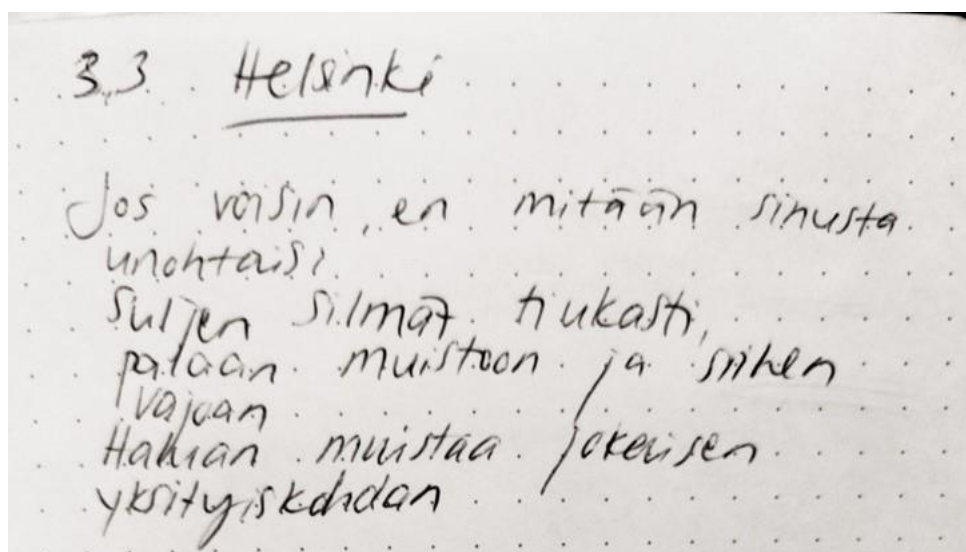 3.3 Helsinki
Jos voisin, en mitään sinusta
unohtaisi
Suljen silmät tiukasti,
palaan muistoon ja siihen
vajoan
Haluan muistaa jokaisen
yksityiskohdan